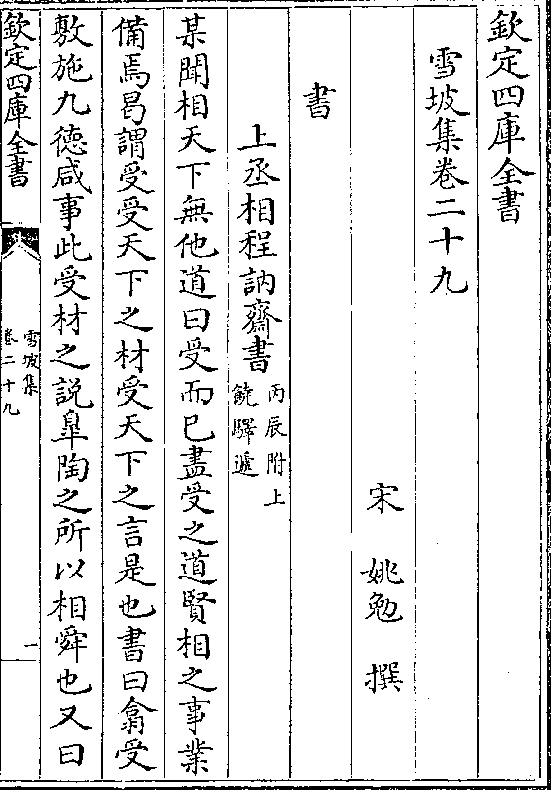 欽定四庫全書
雪坡集卷二十九
宋 姚勉 撰
書
上丞相程訥齋書 丙辰附上
饒驛遞
某聞相天下無他道曰受而已盡受之道賢相之事業
備焉曷謂受受天下之材受天下之言是也書曰翕受
敷施九德咸事此受材之說臯陶之所以相舜也又曰
欽定四庫全書
雪坡集
卷二十九
一